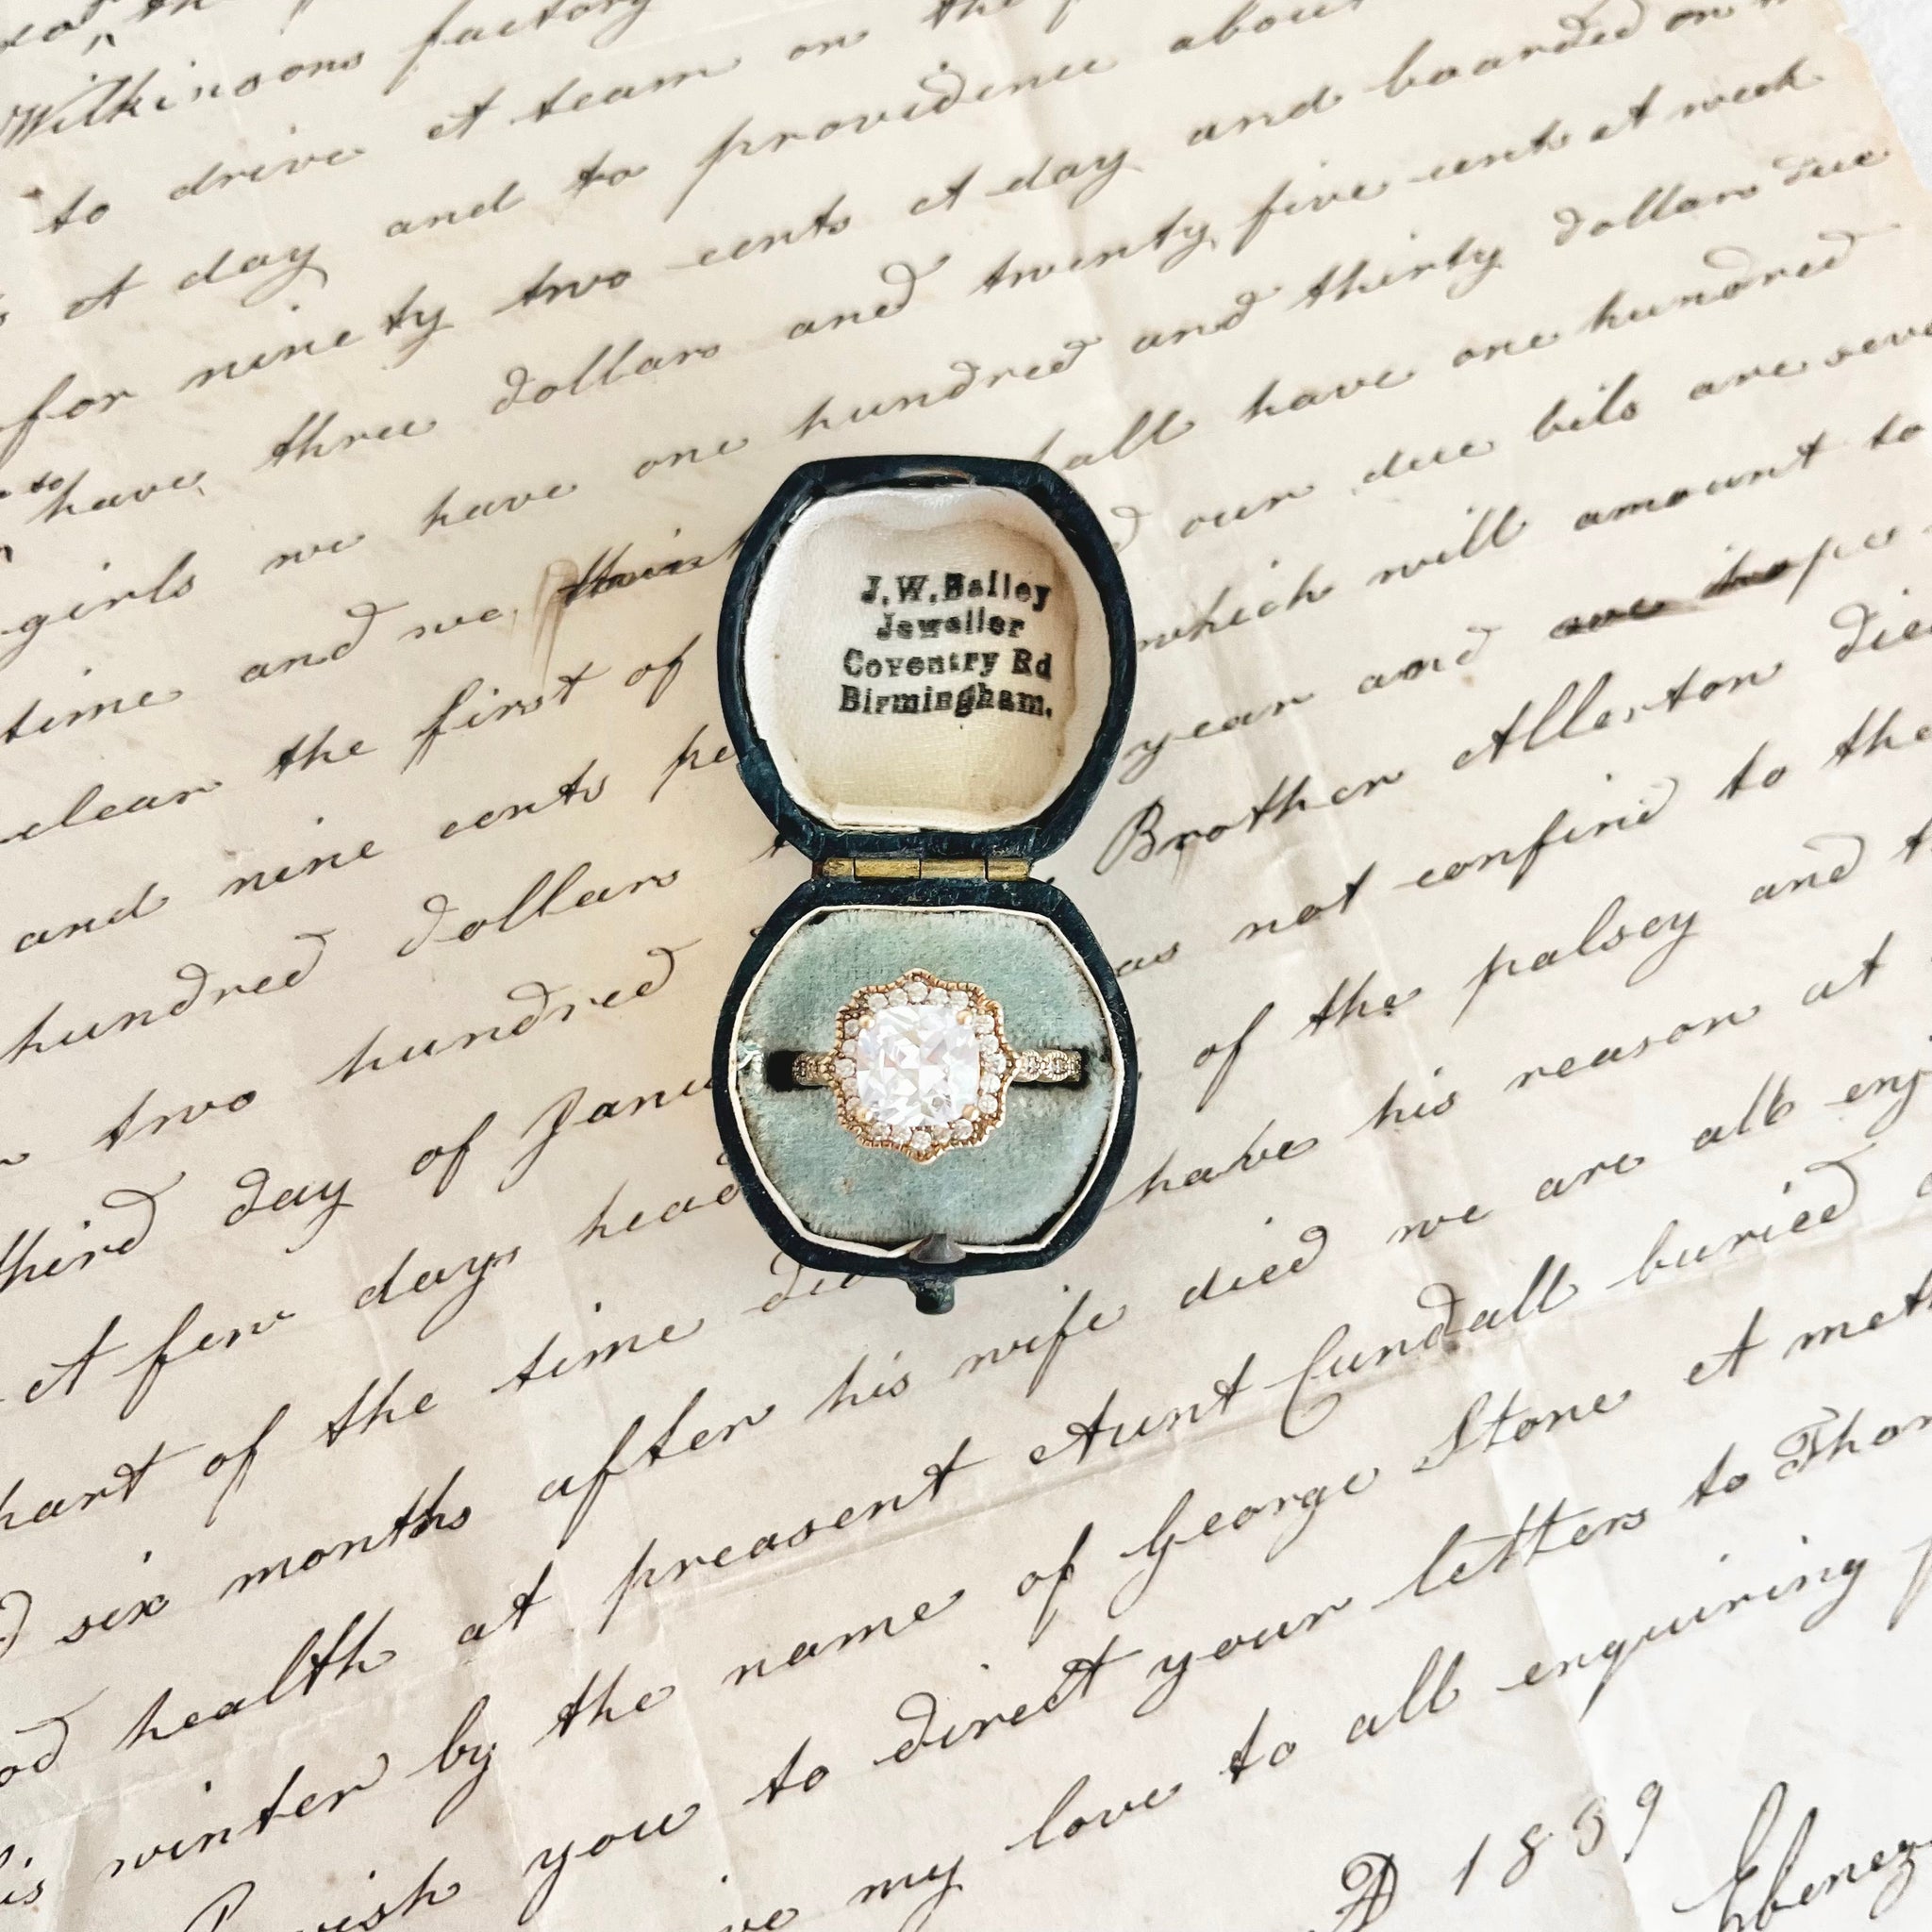 Wilkinsons factory
to drive A team on the
A day and to providence about
for ninety two cents A day and boarded on
to
have three dollars and twenty five cent A week
girls we have one hundred and thirty dollars due
time and we think shall have one hundred
clear the first of our due bils are seve
and nine cents pe which will amount to
hundred dollars year and are hope
two hundred Brother Allerton died
third day of Janu as not confind to the
A few days head of the palsey and th
part of the time did have his reason at
six months after his wife died we are all enj
health at preasent Aunt Cundall buried
winter by the name of George Stone A meth
wish you to direct your letters to Thom
my love to all enquiring f
AD 1839
Ebenez
J.W.Bailey
Jeweller
Coventry Rd
Birmingham.